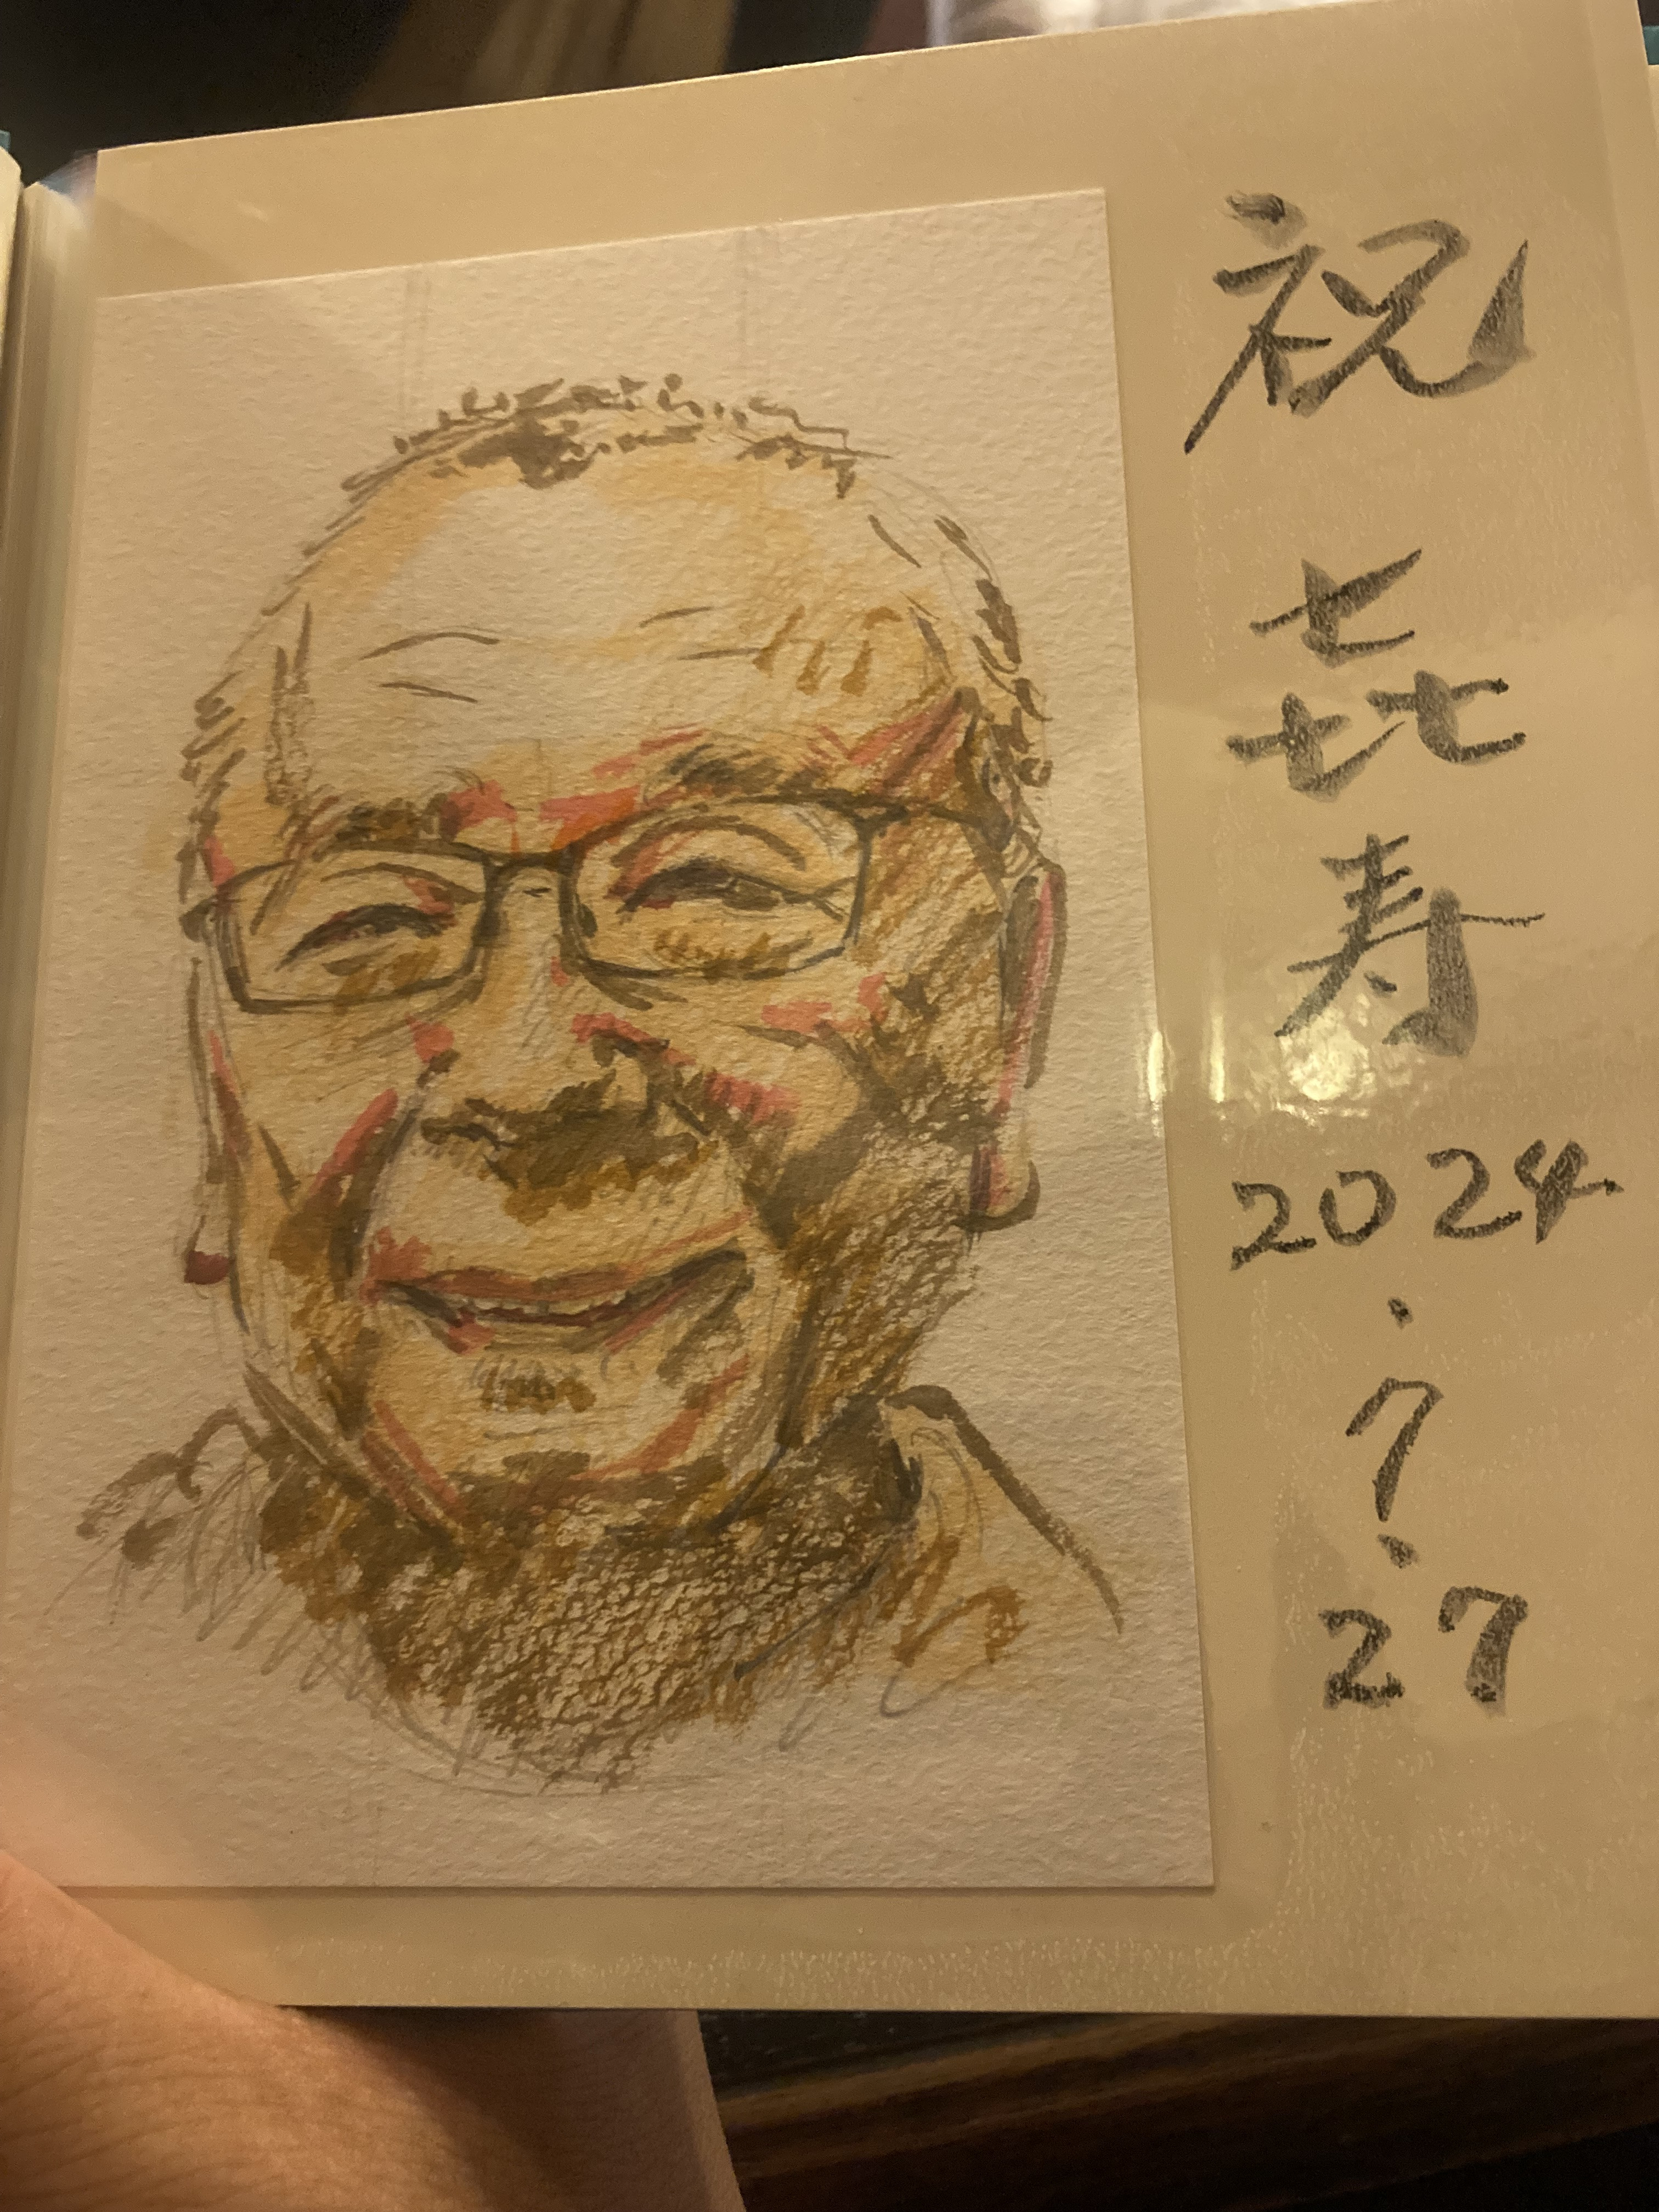 祝
㐂寿
2024
.
7
.
27